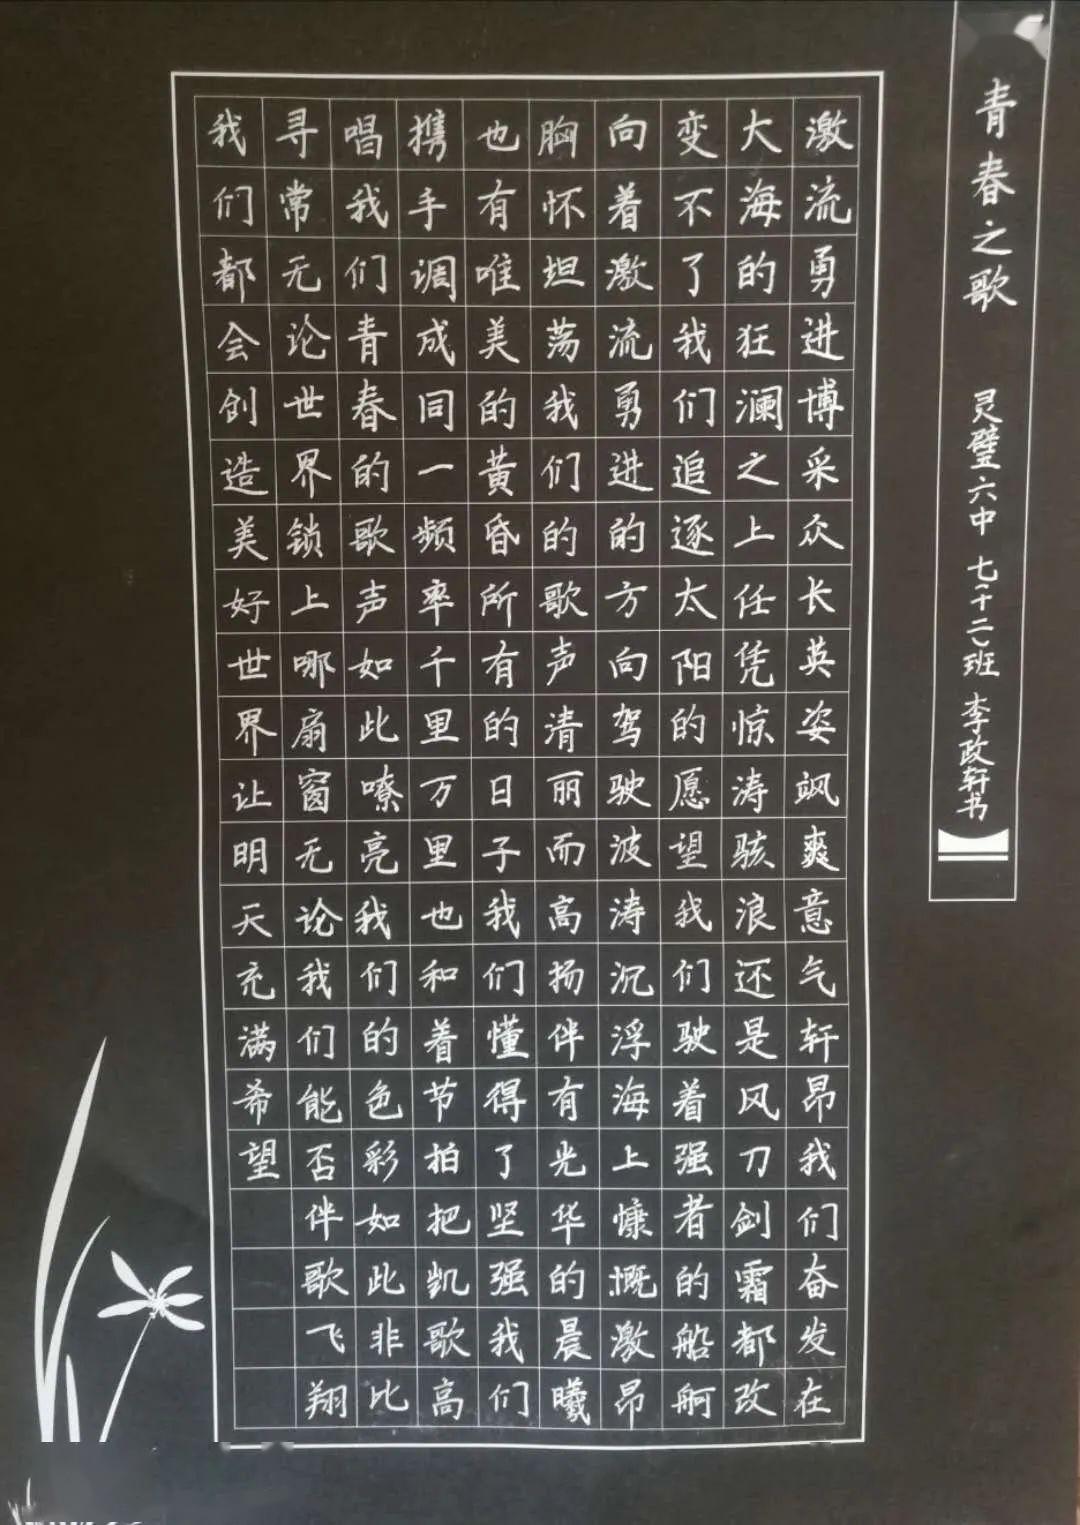 青春之歌 灵璧六中 七(十二)班 李政轩书
激流勇进博采众长英姿飒爽意气轩昂我们奋发在
大海的狂澜之上任凭惊涛骇浪还是风刀剑霜都改
变不了我们追逐太阳的愿望我们驶着强者的船舸
向着激流勇进的方向驾驶波涛沉浮海上慷慨激昂
胸怀坦荡我们的歌声清丽而高扬伴有光华的晨曦
也有唯美的黄昏所有的日子我们懂得了坚强我们
携手调成同一频率千里万里也和着节拍把凯歌高
唱我们青春的歌声如此嘹亮我们的色彩如此非比
寻常无论世界锁上哪扇窗无论我们能否伴歌飞翔
我们都会创造美好世界让明天充满希望